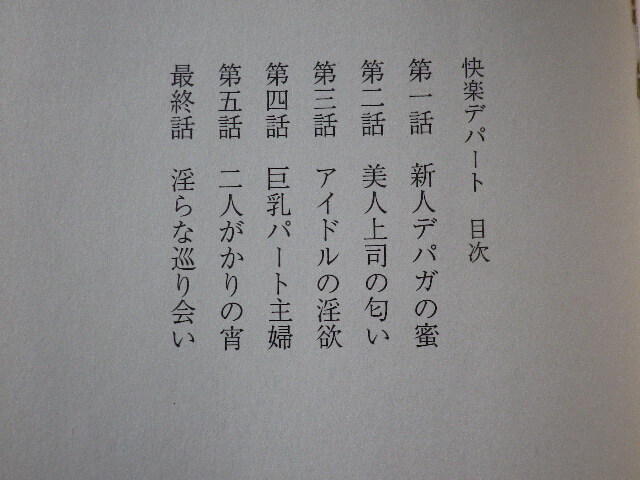 快楽デパート 目次
第一話 新人デパガの蜜
第二話 美人上司の匂い
第三話 アイドルの淫欲
第四話 巨乳パート主婦
第五話 二人がかりの宵
最終話 淫らな巡り会い